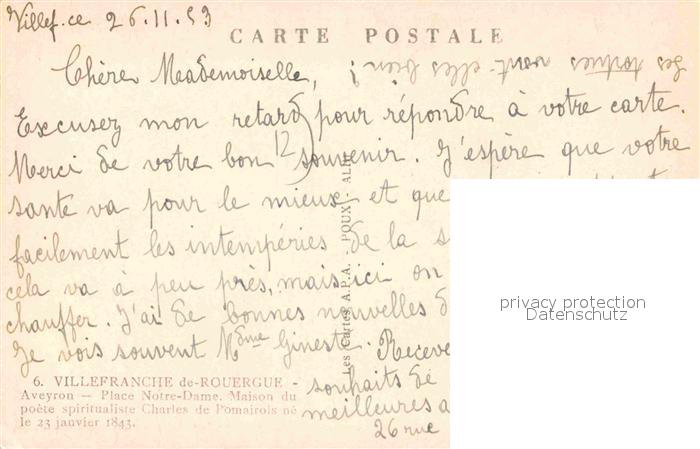 Villef.ce 26.11.53
CARTE POSTALE
Les tortues vont-elles bien ?
Chère Mademoiselle,
Excusez mon retard pour répondre à votre carte.
Merci de votre bon souvenir. J'espère que votre
12
santé va pour le mieux et que
facilement les intempéries de la s
cela va à peu près, mais ici on
chauffer. J'ai de bonnes nouvelles d
Je vois souvent Mdme Ginest. Receve
souhaits de
meilleures a
26 rue
Les Cartes A.P.A. - POUX - ALBI
6. VILLEFRANCHE de-ROUERGUE -
Aveyron — Place Notre-Dame. Maison du
poète spiritualiste Charles de Pomairols né
le 23 janvier 1843.
privacy protection
Datenschutz